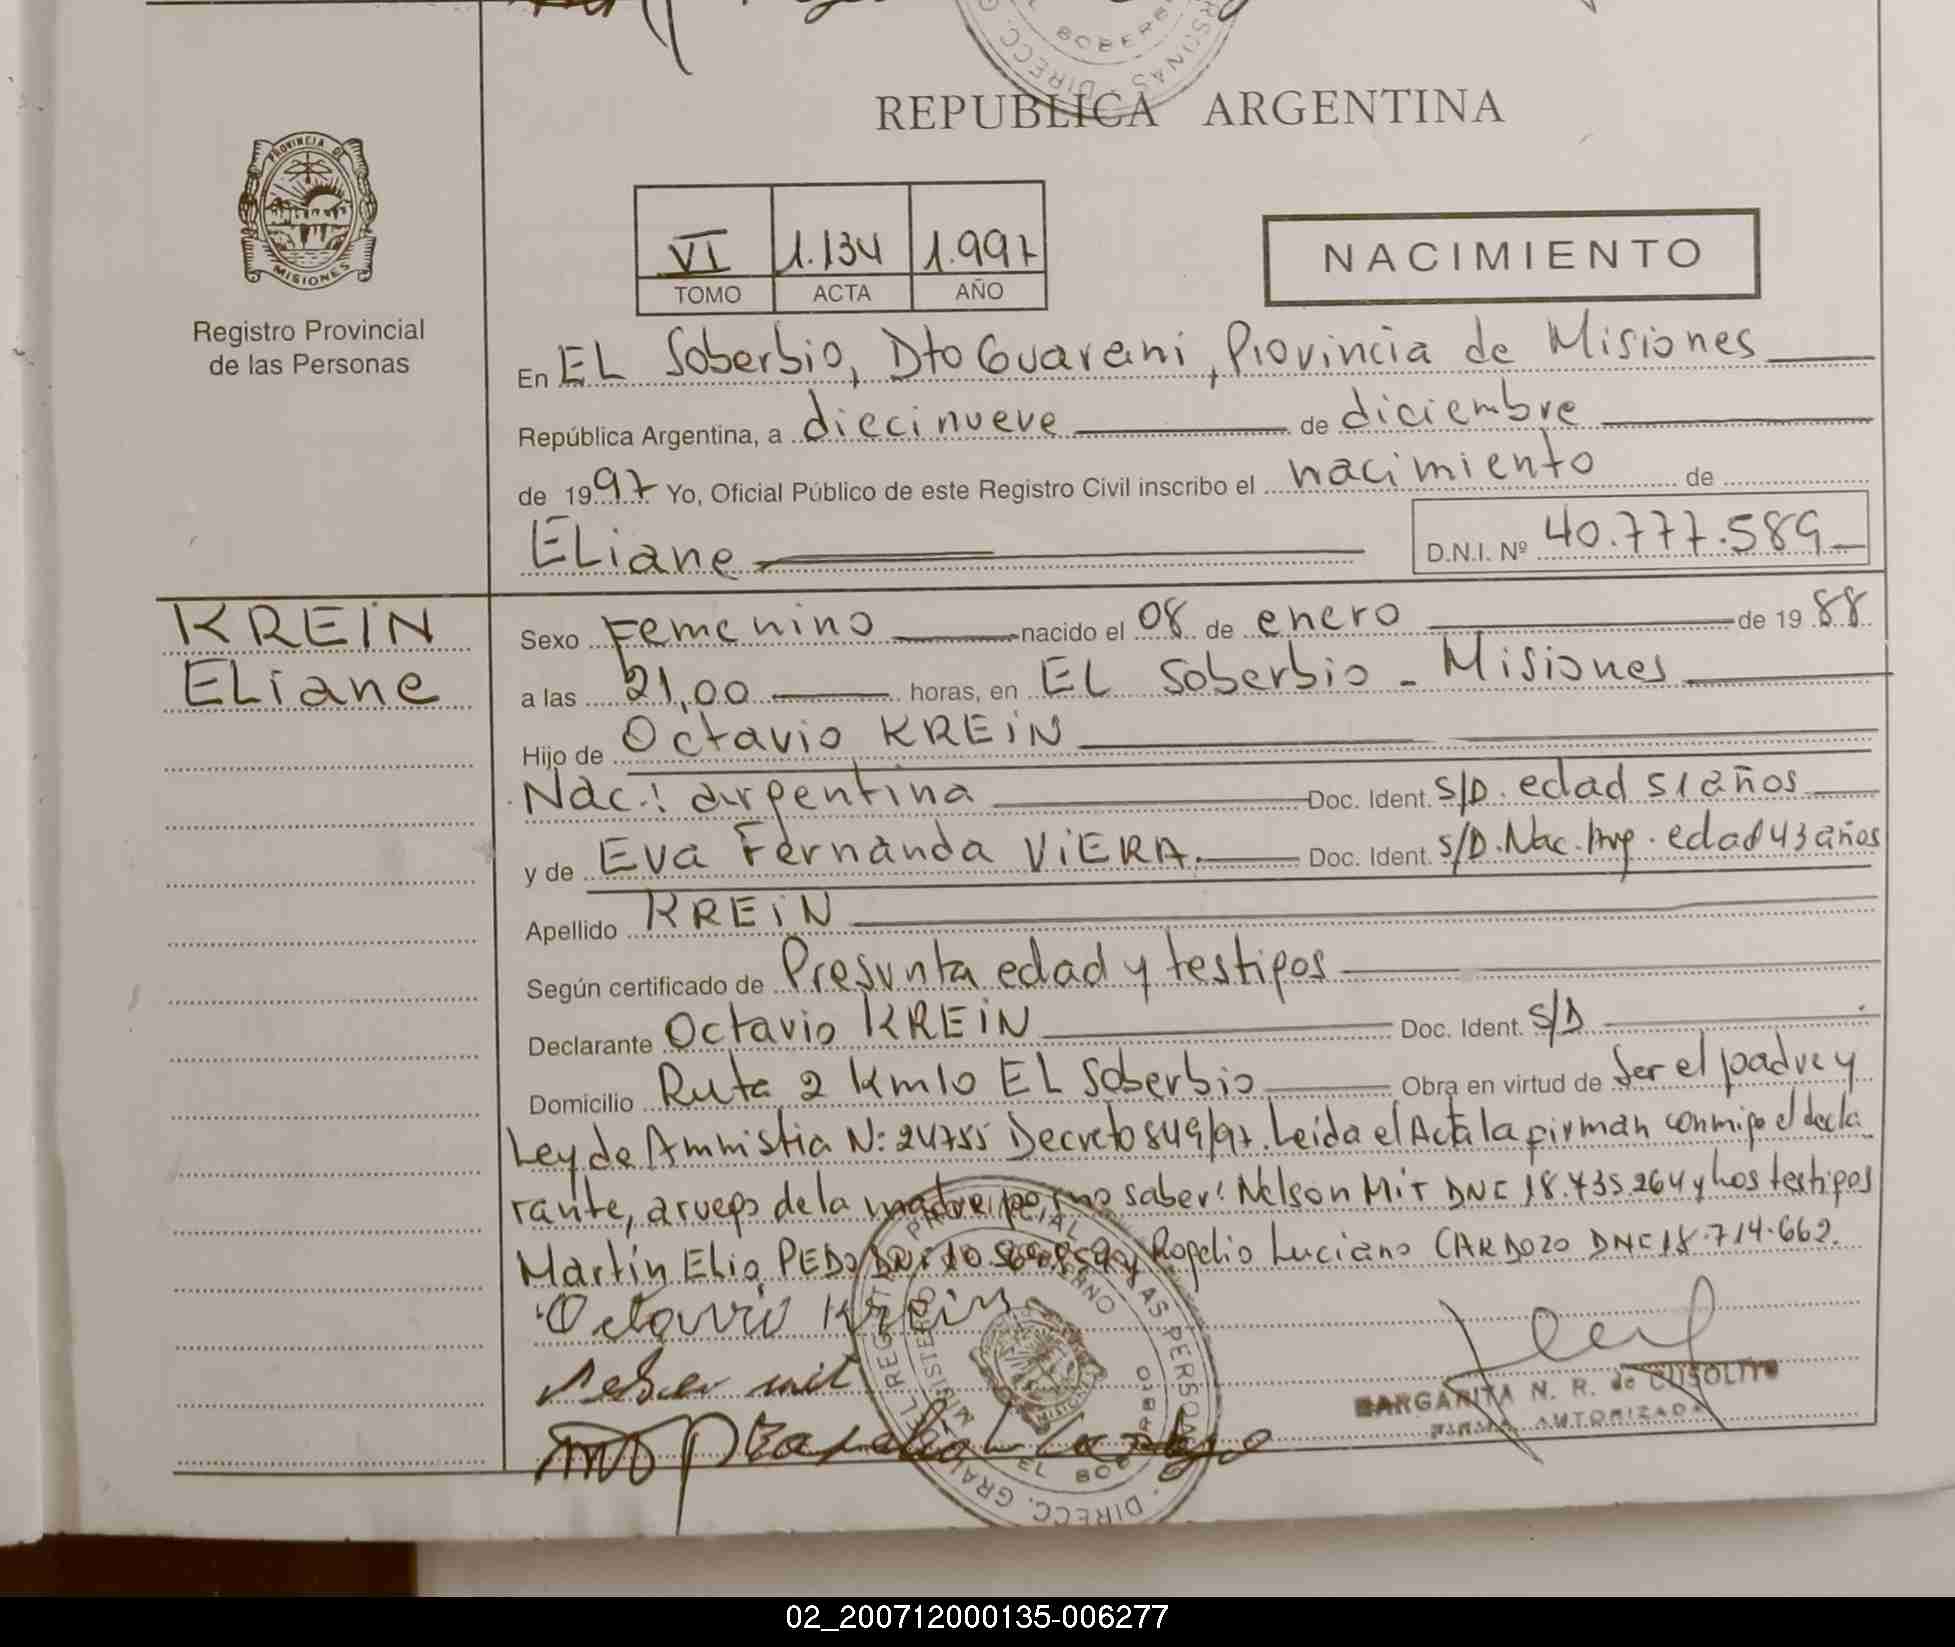 REPUBLICA ARGENTINA
PROVINCIA DE MISIONES
Registro Provincial
de las Personas
VI 1.134 1.997
TOMO ACTA AÑO
NACIMIENTO
En EL Soberbio, Dto Guarani, Provincia de Misiones
República Argentina, a diecinueve de diciembre
de 1997 Yo, Oficial Público de este Registro Civil inscribo el nacimiento de
ELiane D.N.I. Nº 40.777.589
KREIN
ELiane
Sexo Femenino nacido el 08 de enero de 1988
a las 21,00 horas, en EL Soberbio - Misiones
Hijo de Octavio KREIN
Nac.: argentina Doc. Ident. S/D. edad 51 años
y de Eva Fernanda VIERA. Doc. Ident. S/D. Nac. Arg. edad 43 años
Apellido KREIN
Según certificado de Presunta edad y testigos
Declarante Octavio KREIN Doc. Ident. S/D
Domicilio Ruta 2 Km 10 EL Soberbio Obra en virtud de Ser el padre y
Ley de Amnistia N: 24755 Decreto 849/97. Leida el Acta la firman conmigo el decla
rante, a ruego de la madre por no saber: Nelson Mit DNI 18.435.264 y los testigos
Martín Elio PEDO DNI 10. y Rogelio Luciano CARDOZO DNI 18.714.662.
Octavio Krein
MARGARITA N. R. de CUSOLITO
FIRMA AUTORIZADA
02_200712000135-006277